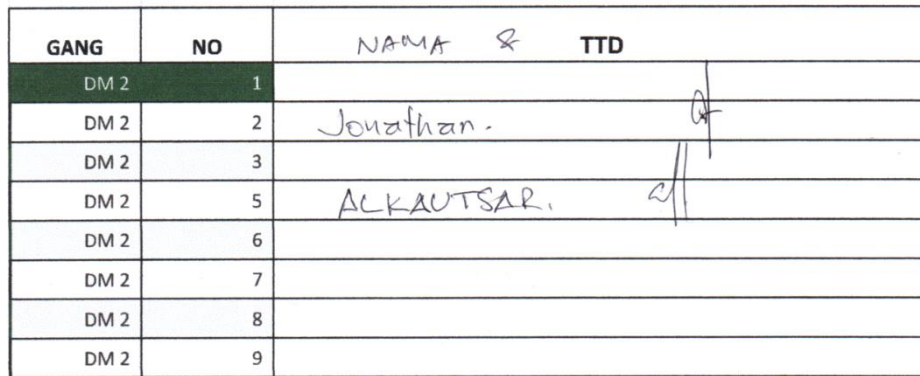 GANG NO NAMA & TTD
DM 2 1
DM 2 2 Jonathan.
DM 2 3
DM 2 5 ALKAUTSAR.
DM 2 6
DM 2 7
DM 2 8
DM 2 9